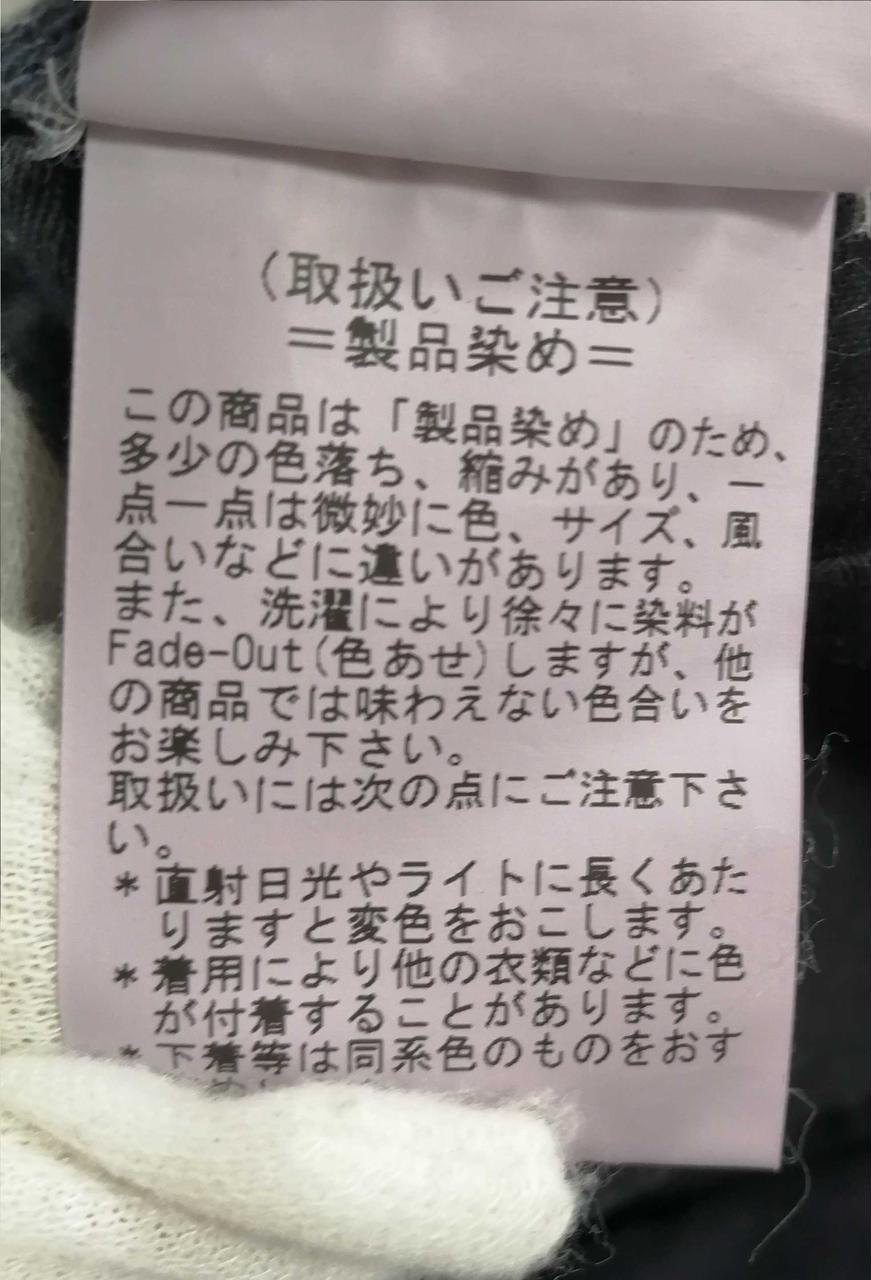 (取扱いご注意)
＝製品染め＝
この商品は「製品染め」のため、
多少の色落ち、縮みがあり、一
点一点は微妙に色、サイズ、風
合いなどに違いがあります。
また、洗濯により徐々に染料が
Fade-Out(色あせ)しますが、他
の商品では味わえない色合いを
お楽しみ下さい。
取扱いには次の点にご注意下さ
い。
＊直射日光やライトに長くあた
りますと変色をおこします。
＊着用により他の衣類などに色
が付着することがあります。
＊下着等は同系色のものをおす